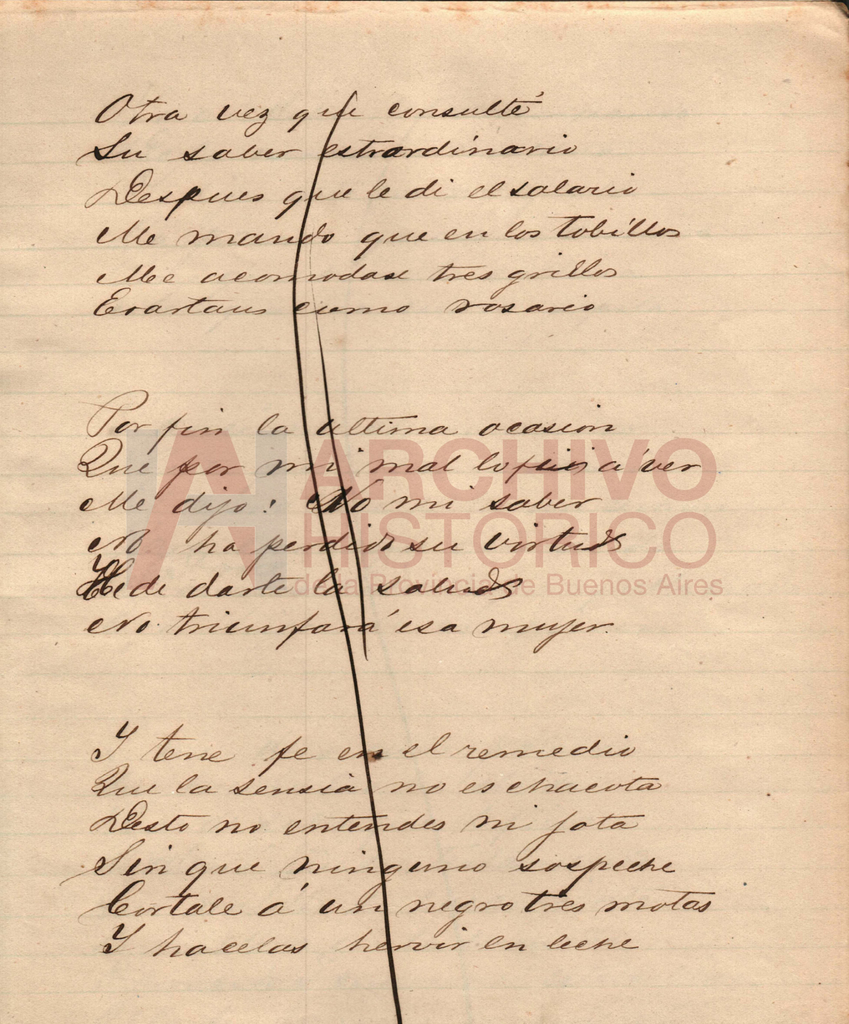 Otra vez que consulté
Su saber estrardinario
Despues que le di el salario
Me mando que en los tobillos
Me acomodase tres grillos
Ensartaus como rosario
Por fin la ultima ocasion
Que por mi mal lo fui á ver
Me dijo: No mi saber
No ha perdido su virtud
He de darte la salud
No triunfará esa mujer.
Y tene fe en el remedio
Que la sensia no es chacota
Desto no entendes ni jota
Sin que ninguno sospeche
Cortale á un negro tres motas
Y hacelas hervir en leche
ARCHIVO
HISTORICO
de la Provincia de Buenos Aires